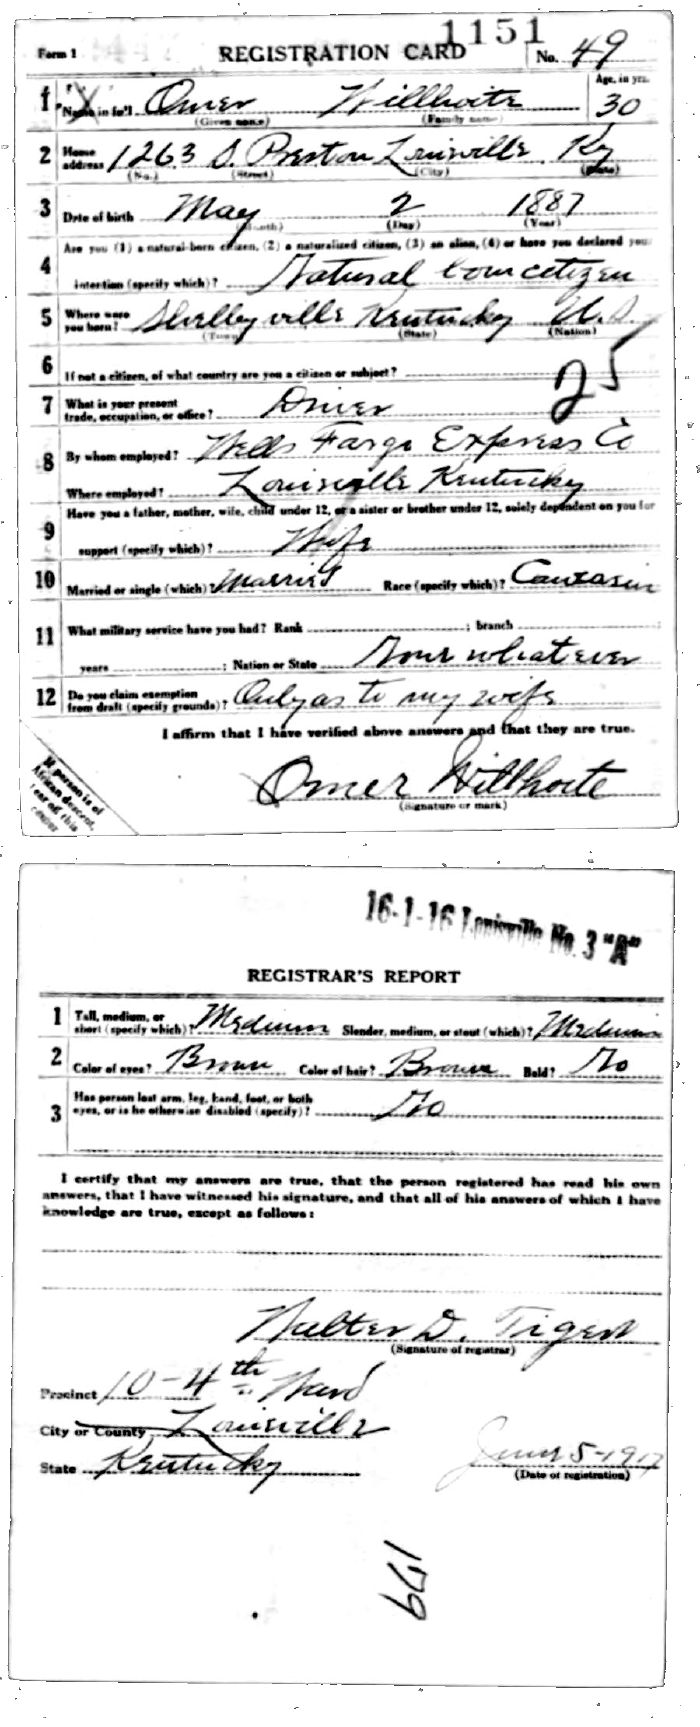 1151
Form 1 REGISTRATION CARD No. 49
1 Name in full Omer Willhoite Age, in yrs. 30
(Given name) (Family name)
2 Home address 1263 S. Preston Louisville Ky
(No.) (Street) (City) (State)
3 Date of birth May 2 1887
(Month) (Day) (Year)
Are you (1) a natural-born citizen, (2) a naturalized citizen, (3) an alien, (4) or have you declared your
4 intention (specify which)? Natural born citizen
5 Where were you born? Shelbyville Kentucky U.S.
(Town) (State) (Nation)
6 If not a citizen, of what country are you a citizen or subject?
25
7 What is your present trade, occupation, or office? Driver
8 By whom employed? Wells Fargo Express Co
Where employed? Louisville Kentucky
9 Have you a father, mother, wife, child under 12, or a sister or brother under 12, solely dependent on you for
support (specify which)? Wife
10 Married or single (which)? Married Race (specify which)?
11 What military service have you had? Rank ; branch
years ; Nation or State None whatever
12 Do you claim exemption from draft (specify grounds)? Only as to my wife
I affirm that I have verified above answers and that they are true.
Omer Willhoite
(Signature or mark)
If person is of
African descent,
tear off this
corner
16-1-16 Louisville No. 3 "A"
REGISTRAR'S REPORT
1 Tall, medium, or short (specify which)? Medium Slender, medium, or stout (which)? Medium
2 Color of eyes? Brown Color of hair? Brown Bald? No
3 Has person lost arm, leg, hand, foot, or both
eyes, or is he otherwise disabled (specify)? No
I certify that my answers are true, that the person registered has read his own
answers, that I have witnessed his signature, and that all of his answers of which I have
knowledge are true, except as follows:
Walter D.
(Signature of registrar)
Precinct 10-4th Ward
City or County Louisville
State Kentucky June 5-1917
(Date of registration)
179